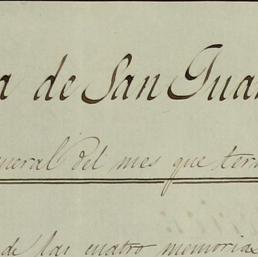 a de San Gua
neral del mes que ter
de las cuatro memoria